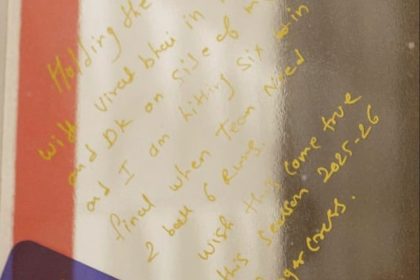 Holding the
with Virat bhai in
and DK on side of m
and I am hitting six win
final when Team Need
2 ball 6 Runs.
wish this come true
this season 2025-26